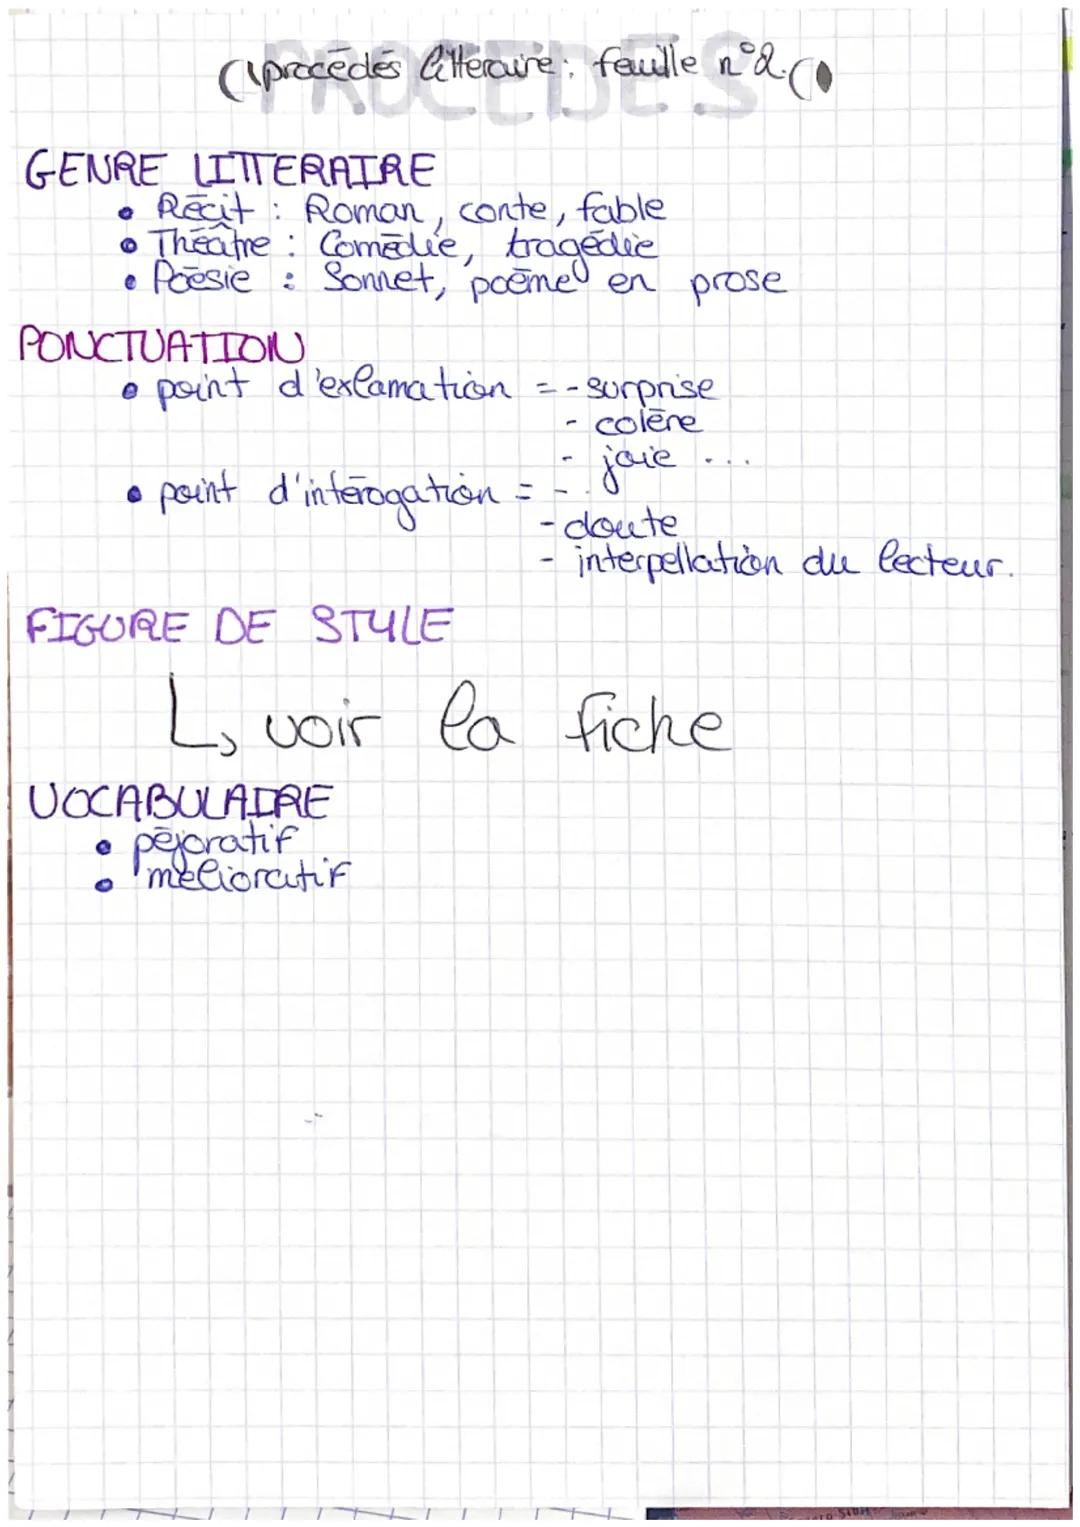 PROCEDES
procédés litteraire : feuille n°2.
GENRE LITTERAIRE
• Récit : Roman, conte, fable
• Théâtre : Comédie, tragédie
• Poésie : Sonnet, poème en prose
PONCTUATION
• point d'exlamation = - surprise
- colère
- joie ...
• point d'intérogation = - .
- doute
- interpellation du lecteur.
FIGURE DE STYLE
↳ voir la fiche
VOCABULAIRE
• péjoratif
• mélioratif